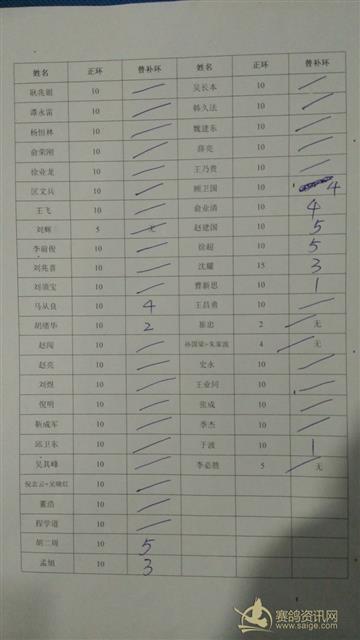 姓名 正环 替补环 姓名 正环 替补环
10 吴长本 10
10 韩久法 10
杨恒林 10 魏建东 10
俞荣刚 10 薛亮 10
徐业龙 10 王乃贵 10
匡文兵 10 顾卫国 10 4
王飞 10 俞业清 10 4
刘辉 5 无 赵建国 10 5
李前俊 10 徐超 10 5
刘兆喜 10 沈耀 15 3
刘颂宝 10 曹新思 10 1
马从良 10 4 王昌勇 10
胡绪华 10 2 崔忠 2 无
赵闯 10 孙国梁+朱家波 4 无
赵亮 10 史永 10
刘煜 10 王业同 10
倪明 10 张成 10
靳成军 10 李杰 10
邱卫东 10 于波 10 1
吴其峰 10 李必胜 5 无
倪志云+吴晓红 10
董浩 10
程学道 10
胡二周 10 5
孟旭 10 3
赛鸽资讯网
www.saige.com